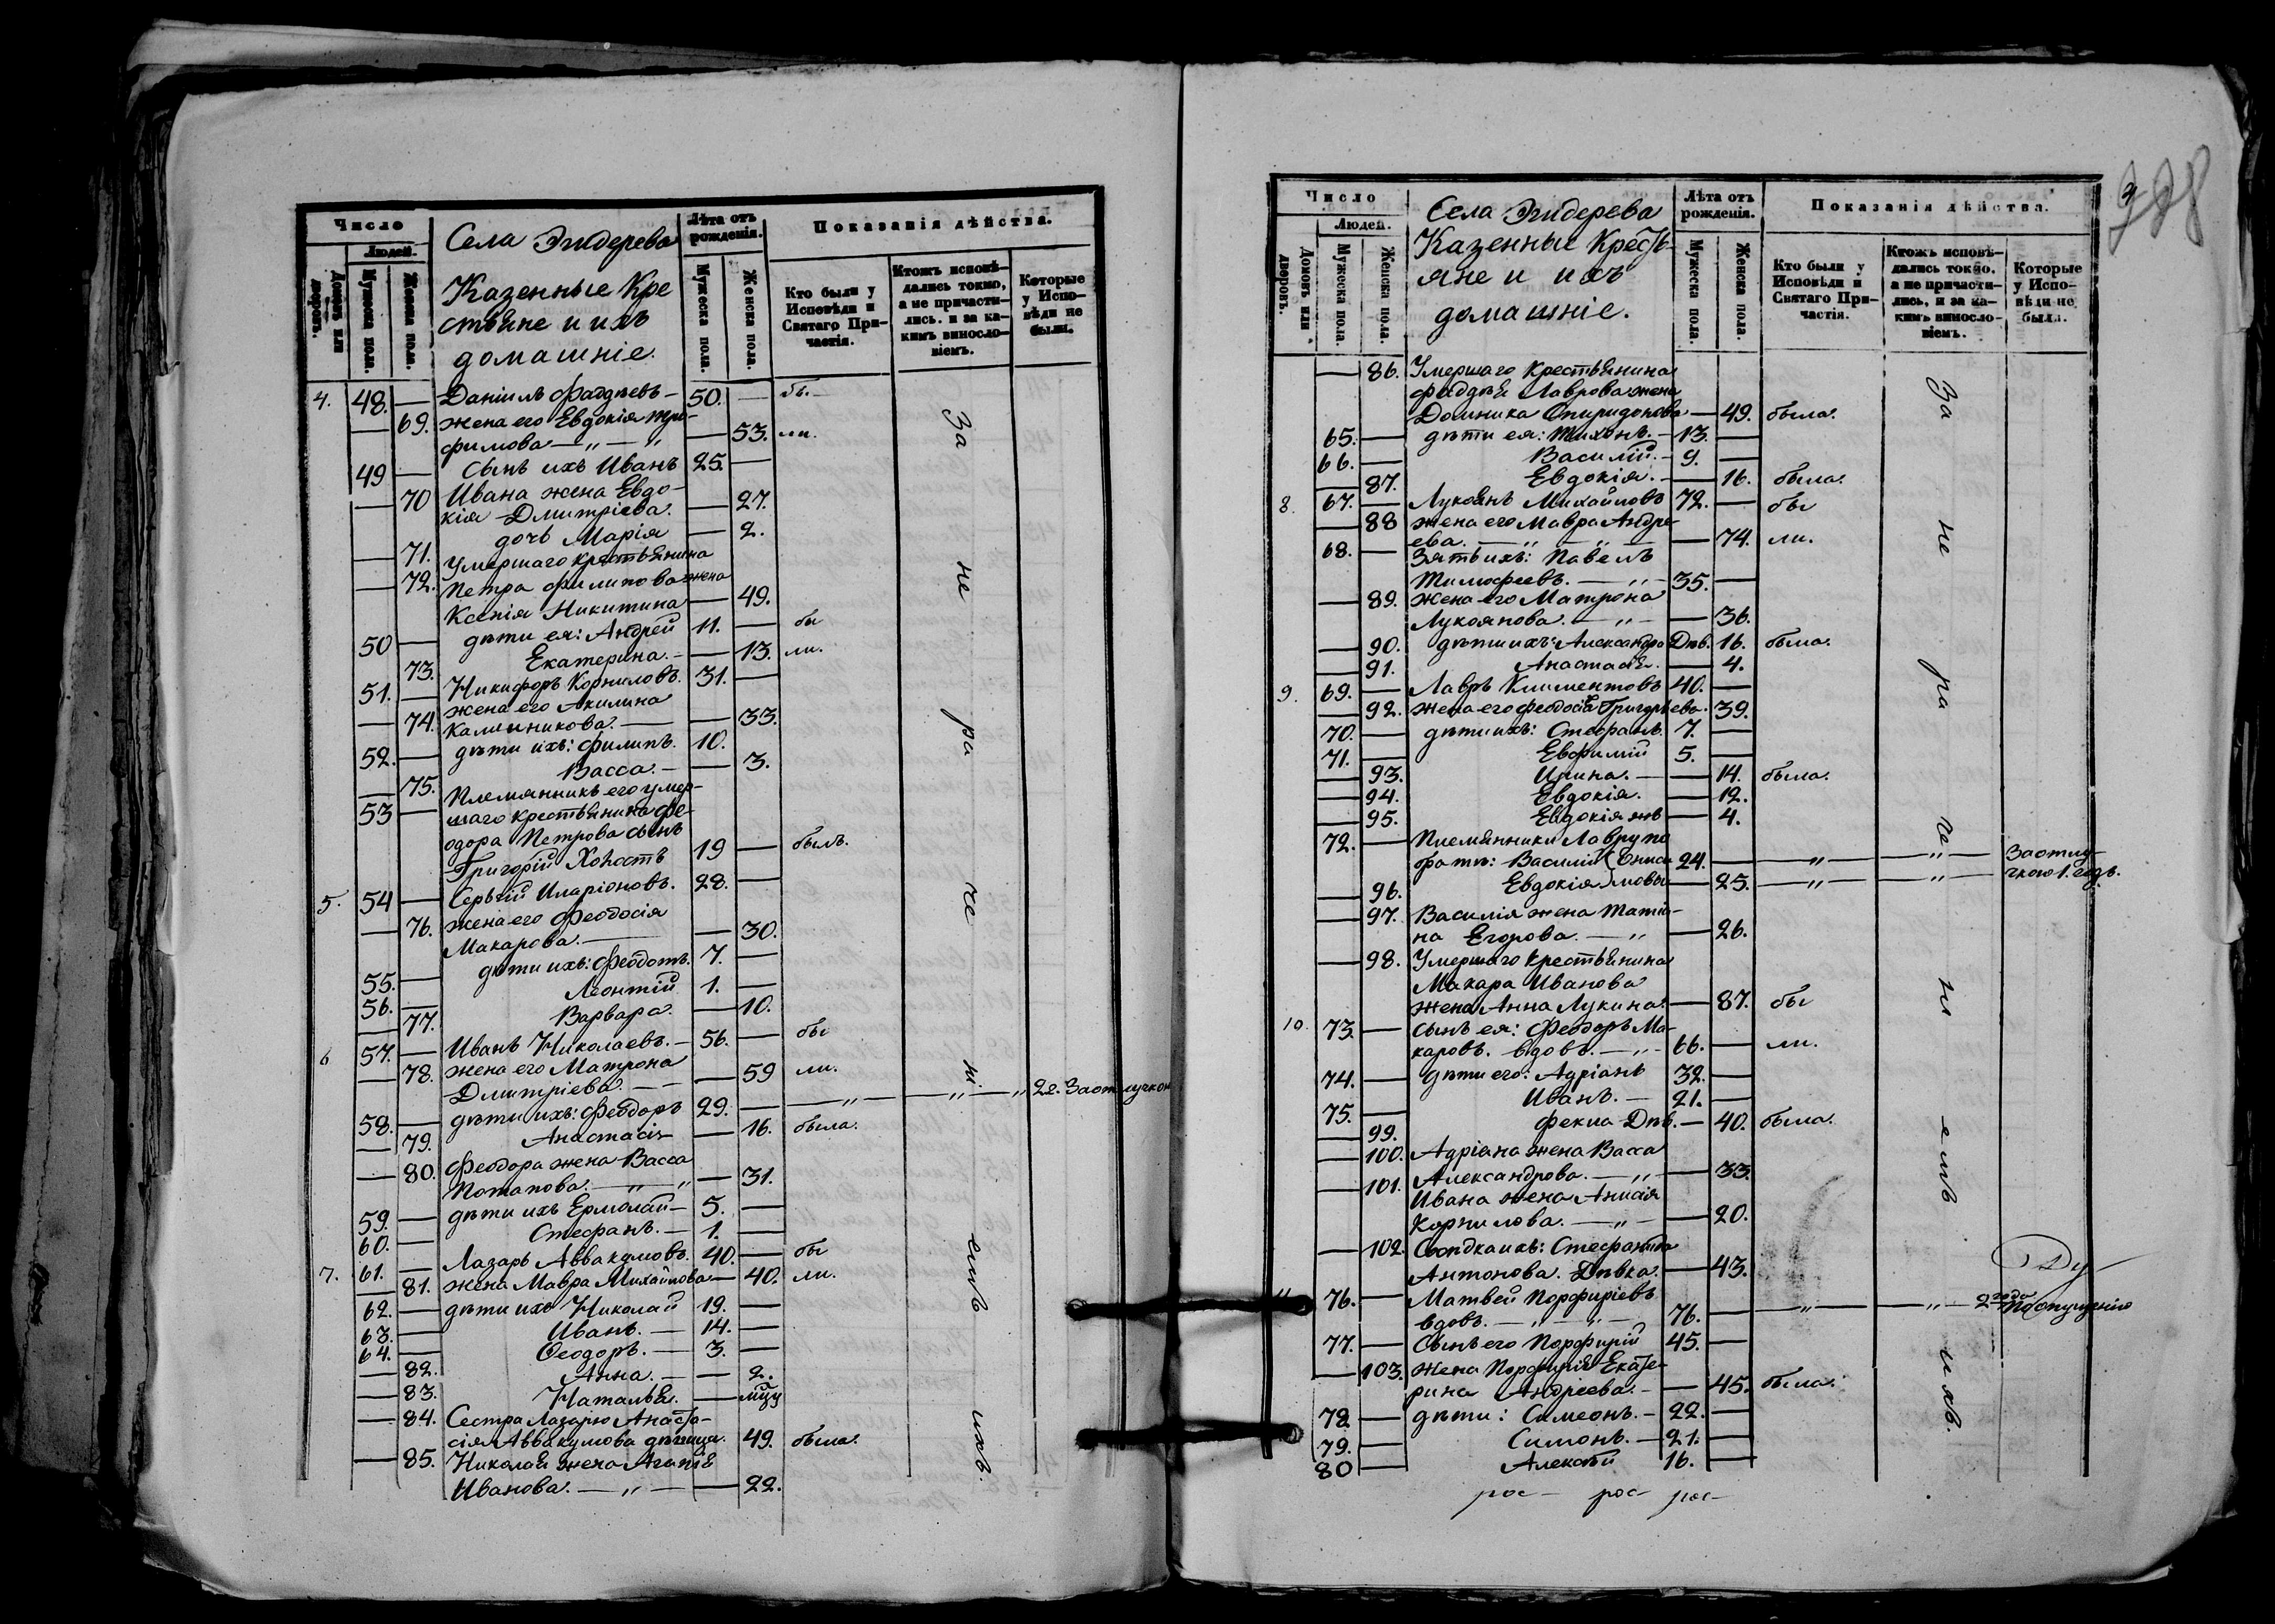 Число
Людей.
Домовъ или дворовъ.
Мужеска пола.
Женска пола.
Села Эщдерева
Казенные Кре
стьяне и ихъ
домашніе.
Лѣта отъ рожденія.
Мужеска пола.
Женска пола.
Показанія дѣйства.
Кто были у Исповѣди и Святаго Причастія.
Ктожъ исповѣдались токмо, а не причастились. и за какимъ винословіемъ.
Которые у Исповѣди не были.
4. 48. — Даніилъ Фаддѣевъ — 50. — бы
— 69. жена его Евдокія Три-
фимова — „ — „ — 53. ли.
49 — сынъ ихъ Иванъ 25. —
— 70 Ивана жена Евдо-
кія Дмитріева. — 27.
— 71. дочь Марія — 2.
— 72. Умершаго крестьянина
Петра Филипова жена
Ксенія Никитина — 49.
50 — дѣти ея: Андрей 11. — бы
— 73. Екатерина. — 13. ли.
51. — Никифоръ Корниловъ. 31. —
— 74. жена его Акилина
Калинникова. — 33.
52. — дѣти ихъ: Филипъ. 10.
— 75. Васса. — 3.
53 — Племянникъ его умер-
шаго крестьянина Фе-
одора Петрова сынъ
Григорій Холостъ 19 — былъ.
5. 54 — Сергѣй Иларіоновъ. 28. —
— 76. жена его Феодосія
Макарова. — 30.
55. — дѣти ихъ: Феодотъ. 7. —
56. — Леонтій 1. —
— 77. Варвара. — 10.
6 57. — Иванъ Николаевъ. — 56. — бы
— 78. жена его Матрона
Дмитріева. — 59 ли.
58. — дѣти ихъ: Феодоръ 29. — „ — „ — „ 2г. За отлучкою
— 79. Анастасія — 16. была.
— 80. Феодора жена Васса
Потапова. — „ — „ — 31.
59. — дѣти ихъ Ермолай — 5. —
60. — Стефанъ. — 1. —
7. 61. — Лазарь Аввакумовъ. 40. — бы
— 81. жена Мавра Михайлова — 40. ли.
62. — дѣти ихъ Николай 19. —
63. — Иванъ. — 14. —
64. — Ѳеодоръ. — 3. —
— 82. Анна. — 2.
— 83. Наталья.
— 84. Сестра Лазарю Анаста-
сія Аввакумова дѣвица. 49. была.
— 85. Николая жена Агапія
Иванова. — „ — 22.
За не ра че ні емъ ихъ.
Число
Людей.
Домовъ или дворовъ.
Мужеска пола.
Женска пола.
Села Эщдерева
Казенные Кресть-
яне и ихъ
домашніе.
Лѣта отъ рожденія.
Мужеска пола.
Женска пола.
Показанія дѣйства.
Кто были у Исповѣди и Святаго Причастія.
Ктожъ исповѣдались токмо. а не причастились, и за какимъ винословіемъ.
Которые у Исповѣди не были.
— 86. Умершаго Крестьянина
Фаддѣя Лаврова жена
Домника Спиридонова — 49. была.
65. — дѣти ея: Тихонъ. — 13. —
66. — Василій. — 9. —
— 87. Евдокія. — 16. была.
8. 67. — Лукоянъ Михайловъ 72. — бы
— 88 жена его Мавра Андре-
ева. — „ — „ — 74. ли.
68. — Зять ихъ: Павелъ
Тимофеевъ. — „ — 35. —
— 89. жена его Матрона
Лукоянова. — „ — 36.
— 90. дѣти ихъ: Александра Дѣв. 16. была.
— 91. Анастасія. — 4.
9. 69. — Лавръ Климентовъ 40. —
— 92. жена его Феодосія Григорьева. 39.
70. — дѣти ихъ: Стефанъ. 7. —
71. — Евфимій 5. —
— 93. Ирина. — 14. была.
— 94. Евдокія. — 12.
— 95. Евдокія — 4.
72. — Племянники Лавру по
братѣ: Василій 24. — „ — „ — За отлу-
— 96. Евдокія — 25. — „ — „ — чкою 1. годъ.
— 97. Василія жена Татія-
на Егорова. — „ — 26.
— 98. Умершаго Крестьянина
Макара Иванова
жена Анна Лукина. — 87. бы
10. 73. — сынъ ея: Феодоръ Ма-
каровъ. вдовъ. — „ — 66. — ли.
74. — дѣти его: Адріанъ 32. —
75. — Иванъ. — 21. —
— 99. Фекла Дѣв. — 40. была.
— 100. Адріана жена Васса
Александрова. — „ — 33.
— 101. Ивана жена Анисія
Корнилова. — „ — 20.
— 102. Сосѣдка ихъ: Стефанида
Антонова. Дѣвка. — 43.
11 76. — Матвей Порфиріевъ
вдовъ. — „ — „ — 76. — „ — „ — 2 года По опущенію
77. — Сынъ его Порфирій 45. —
— 103. Жена Порфирія Екате-
рина Андреева. — 45. была.
78. — дѣти: Симеонъ. — 22. —
79. — Симонъ. — 21. —
80 — Алексѣй 16. —
За не ра че ні емъ ихъ.
рос — рос — рос —